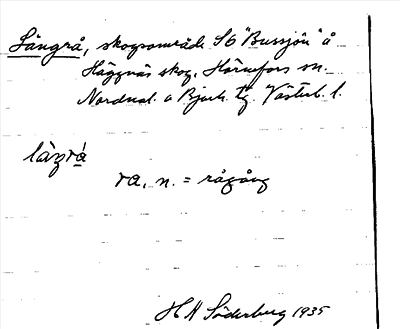 Långrå, skogsområde SO "Bussjön" å
Häggnäs skog. Hörnefors sn.
Nordmal. o Bjurh. tg Västerb. l.
làŋrá
ra, n. = rågång
H A Söderberg 1935